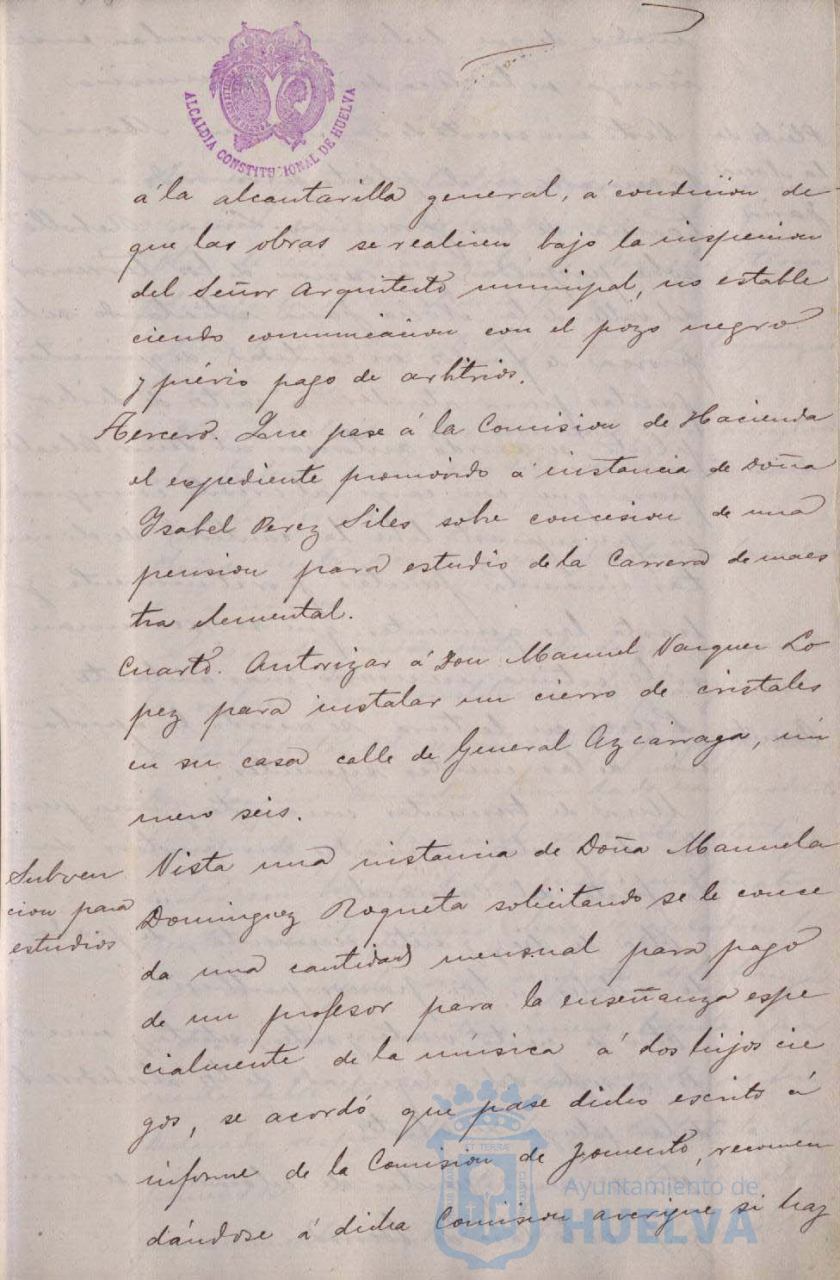 ALCALDIA CONSTITUCIONAL DE HUELVA
á la alcantarilla general, á condicion de
que las obras se realicen bajo la inspeccion
del Señor Arquitecto municipal, no estable
ciendo comunicacion con el pozo negro
y prévio pago de arbitrios.
Tercero. Que pase á la Comision de Hacienda
el expediente promovido á instancia de Doña
Ysabel Perez Siles sobre concesion de una
pension para estudio de la Carrera de maes
tra elemental.
Cuarto. Autorizar á Don Manuel Vazquez Lo
pez para instalar un cierro de cristales
en su casa calle de General Azcárraga, nú
mero seis.
Subven
cion para
estudios
Vista una instancia de Doña Manuela
Dominguez Roqueta solicitando se le conce
da una cantidad mensual para pago
de un profesor para la enseñanza espe
cialmente de la música á dos hijos cie
gos, se acordó que pase dicho escrito á
informe de la Comision de Fomento, recomen
dándose á dicha Comision averigue si hay
Ayuntamiento de
HUELVA